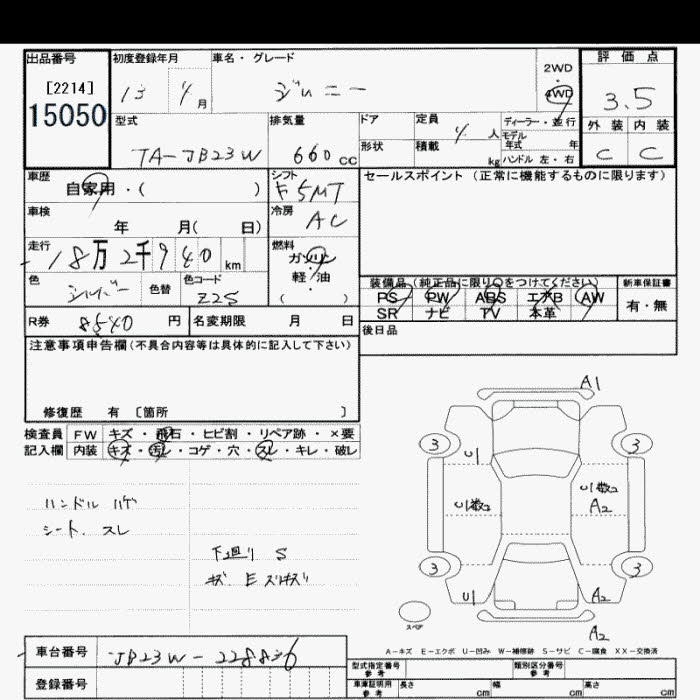 出品番号
[2214]
15050
初度登録年月
13 4月
車名・グレード
ジムニー
2WD
・
4WD
評価点
3.5
外装 内装
C C
型式
TA-JB23W
排気量
660cc
ドア
形状
定員
4人
積載
kg
ディーラー・並行
モデル年式 年
ハンドル 左・右
車歴
自家用・( )
シフト
F5MT
セールスポイント (正常に機能するものに限ります)
車検
年 月( 日)
冷房
AC
走行
18万2千940km
燃料
ガソリン
・
軽油
( )
色
シルバー
色替
色コード
Z2S
装備品 (純正品に限り○をつけてください)
PS PW ABS エアB AW
SR ナビ TV 本革
新車保証書
有・無
R券 8540円
名変期限 月 日
後日品
注意事項申告欄(不具合内容等は具体的に記入して下さい)
修復歴 有 [箇所 ]
検査員 FW キズ・飛石・ヒビ割・リペア跡・×要
記入欄 内装 キズ・汚レ・コゲ・穴・スレ・キレ・破レ
ハンドル ハゲ
シート、スレ
下廻り S
キズ E スリキズ
A1
3 3
U1
U1数2
U1数2
A2
3 3
U1
A2
スペア
A2
A-キズ E-エクボ U-凹み W-補修跡 S-サビ C-腐食 XX-交換済
車台番号 JB23W-228836
登録番号
型式指定番号
参考
類別区分番号
参考
車庫証明用
参考
長さ cm 幅 cm 高さ cm